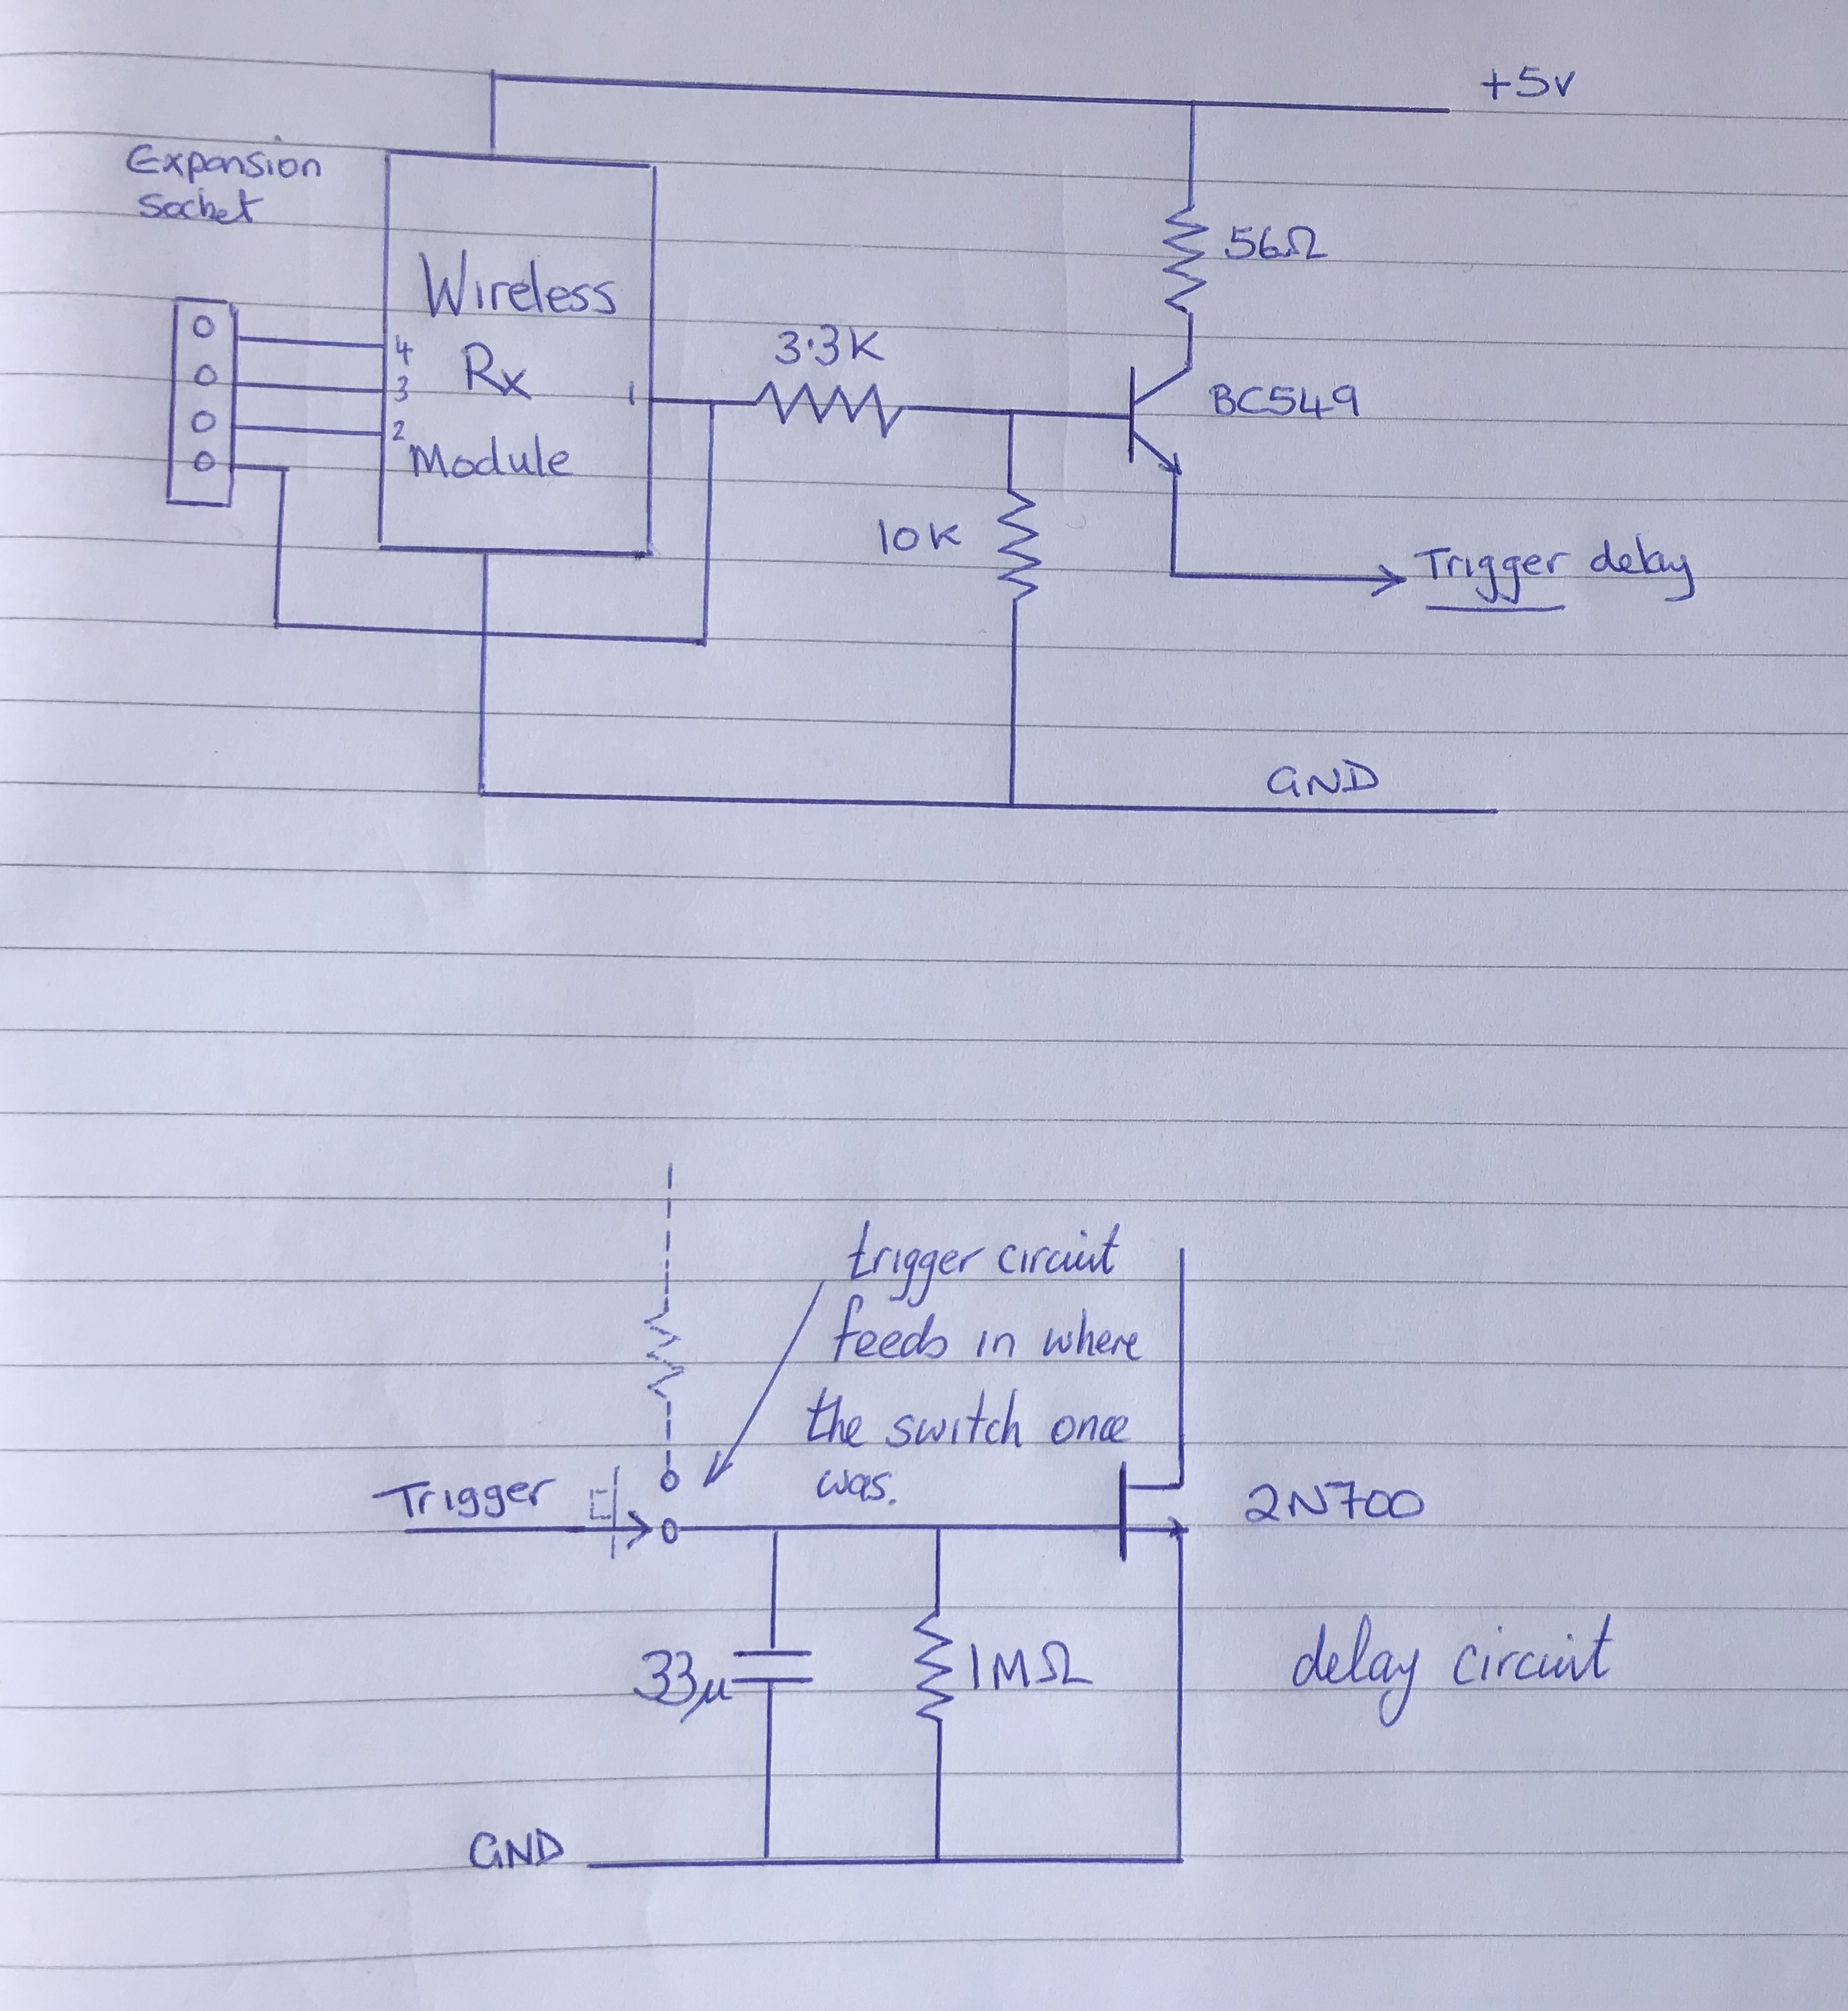 +5v
Expansion
Socket
56Ω
Wireless
4
Rx
3
1
2
Module
3.3K
BC549
10K
Trigger delay
GND
trigger circuit
feeds in where
the switch once
was.
Trigger
2N700
33µ
1MΩ
delay circuit
GND